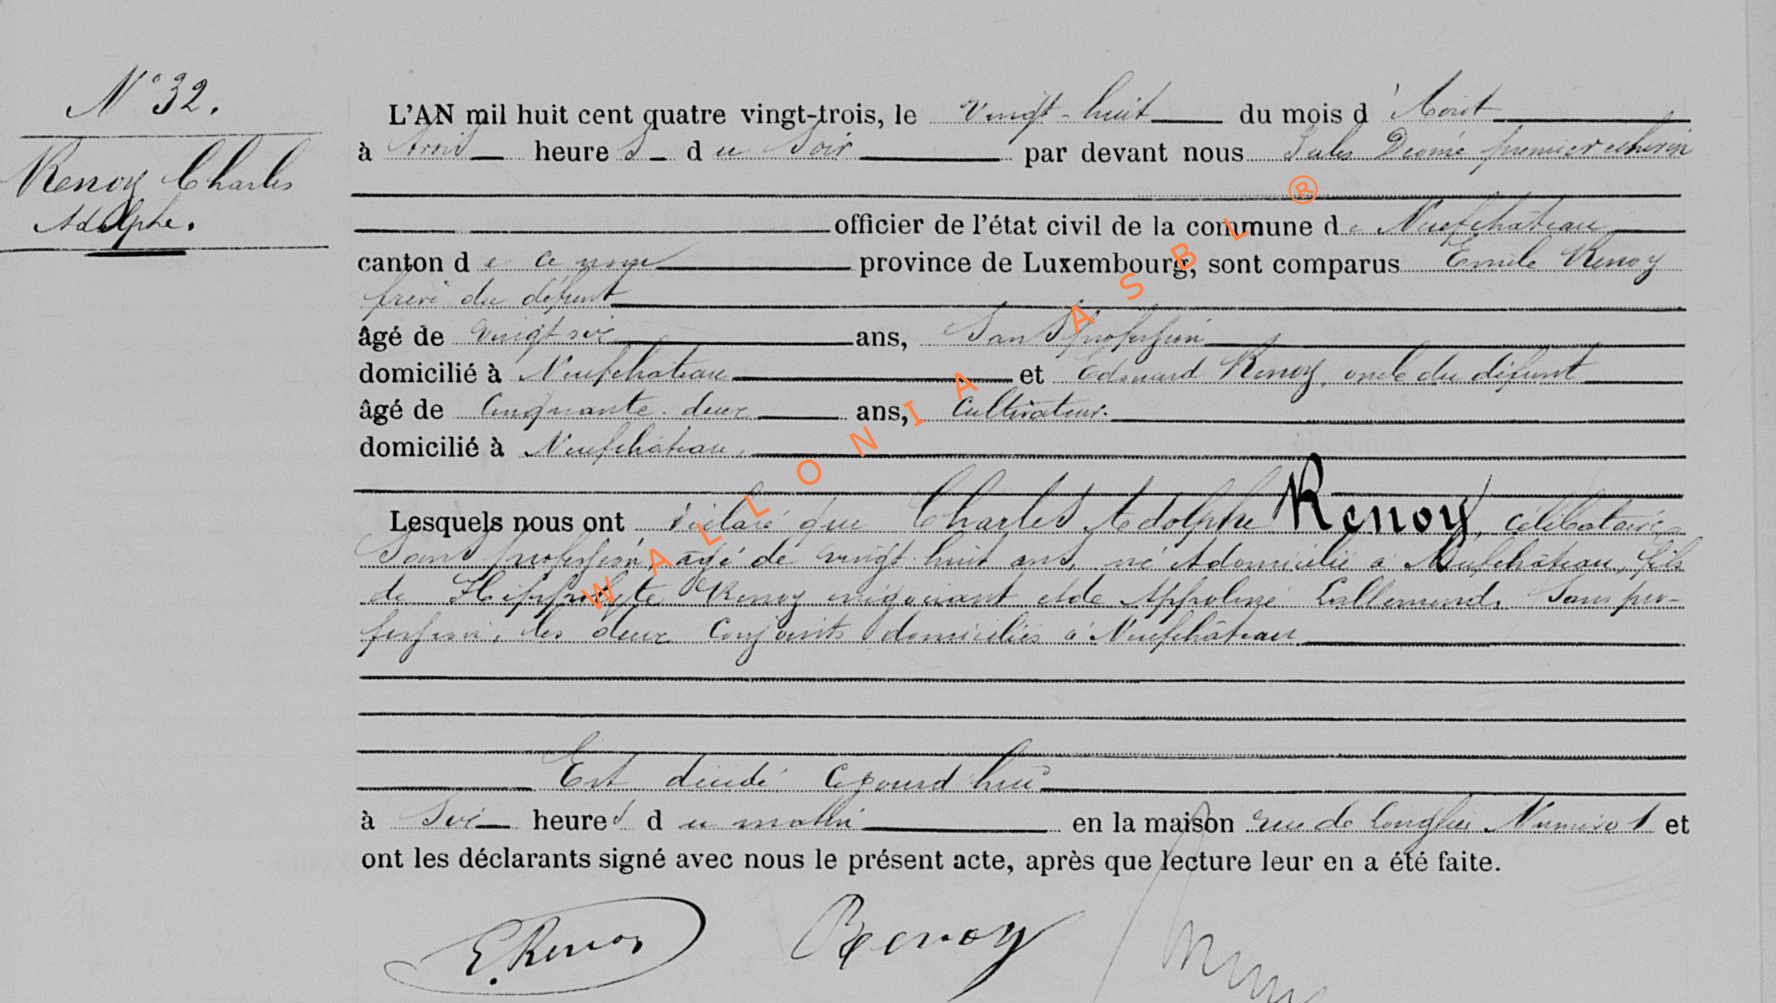 N° 32.
Renoy Charles
Adolphe.
L'AN mil huit cent quatre vingt-trois, le vingt-huit du mois d'Aout
à trois heures du Soir par devant nous Jules premier echevin
officier de l'état civil de la commune de Neufchâteau
canton de ce nom province de Luxembourg, sont comparus Emile Renoy
frère du défunt
âgé de vingt six ans, Sans profession
domicilié à Neufchâteau et Edouard Renoy, oncle du défunt
âgé de Cinquante-deux ans, Cultivateur.
domicilié à Neufchâteau,
Lesquels nous ont déclaré que Charles Adolphe Renoy, célibataire
Sans profession, agé de vingt huit ans, né & domicilié à Neufchâteau, fils
de Hippolyte Renoy négociant et de Appoline Lallemand, Sans pro-
fession, les deux Conjoints domiciliés à Neufchâteau
Est décédé cejourd'hui
à Six heures du matin en la maison rue de Numéro 1 et
ont les déclarants signé avec nous le présent acte, après que lecture leur en a été faite.
E. Renoy Renoy
WALLONIA ASBL ®